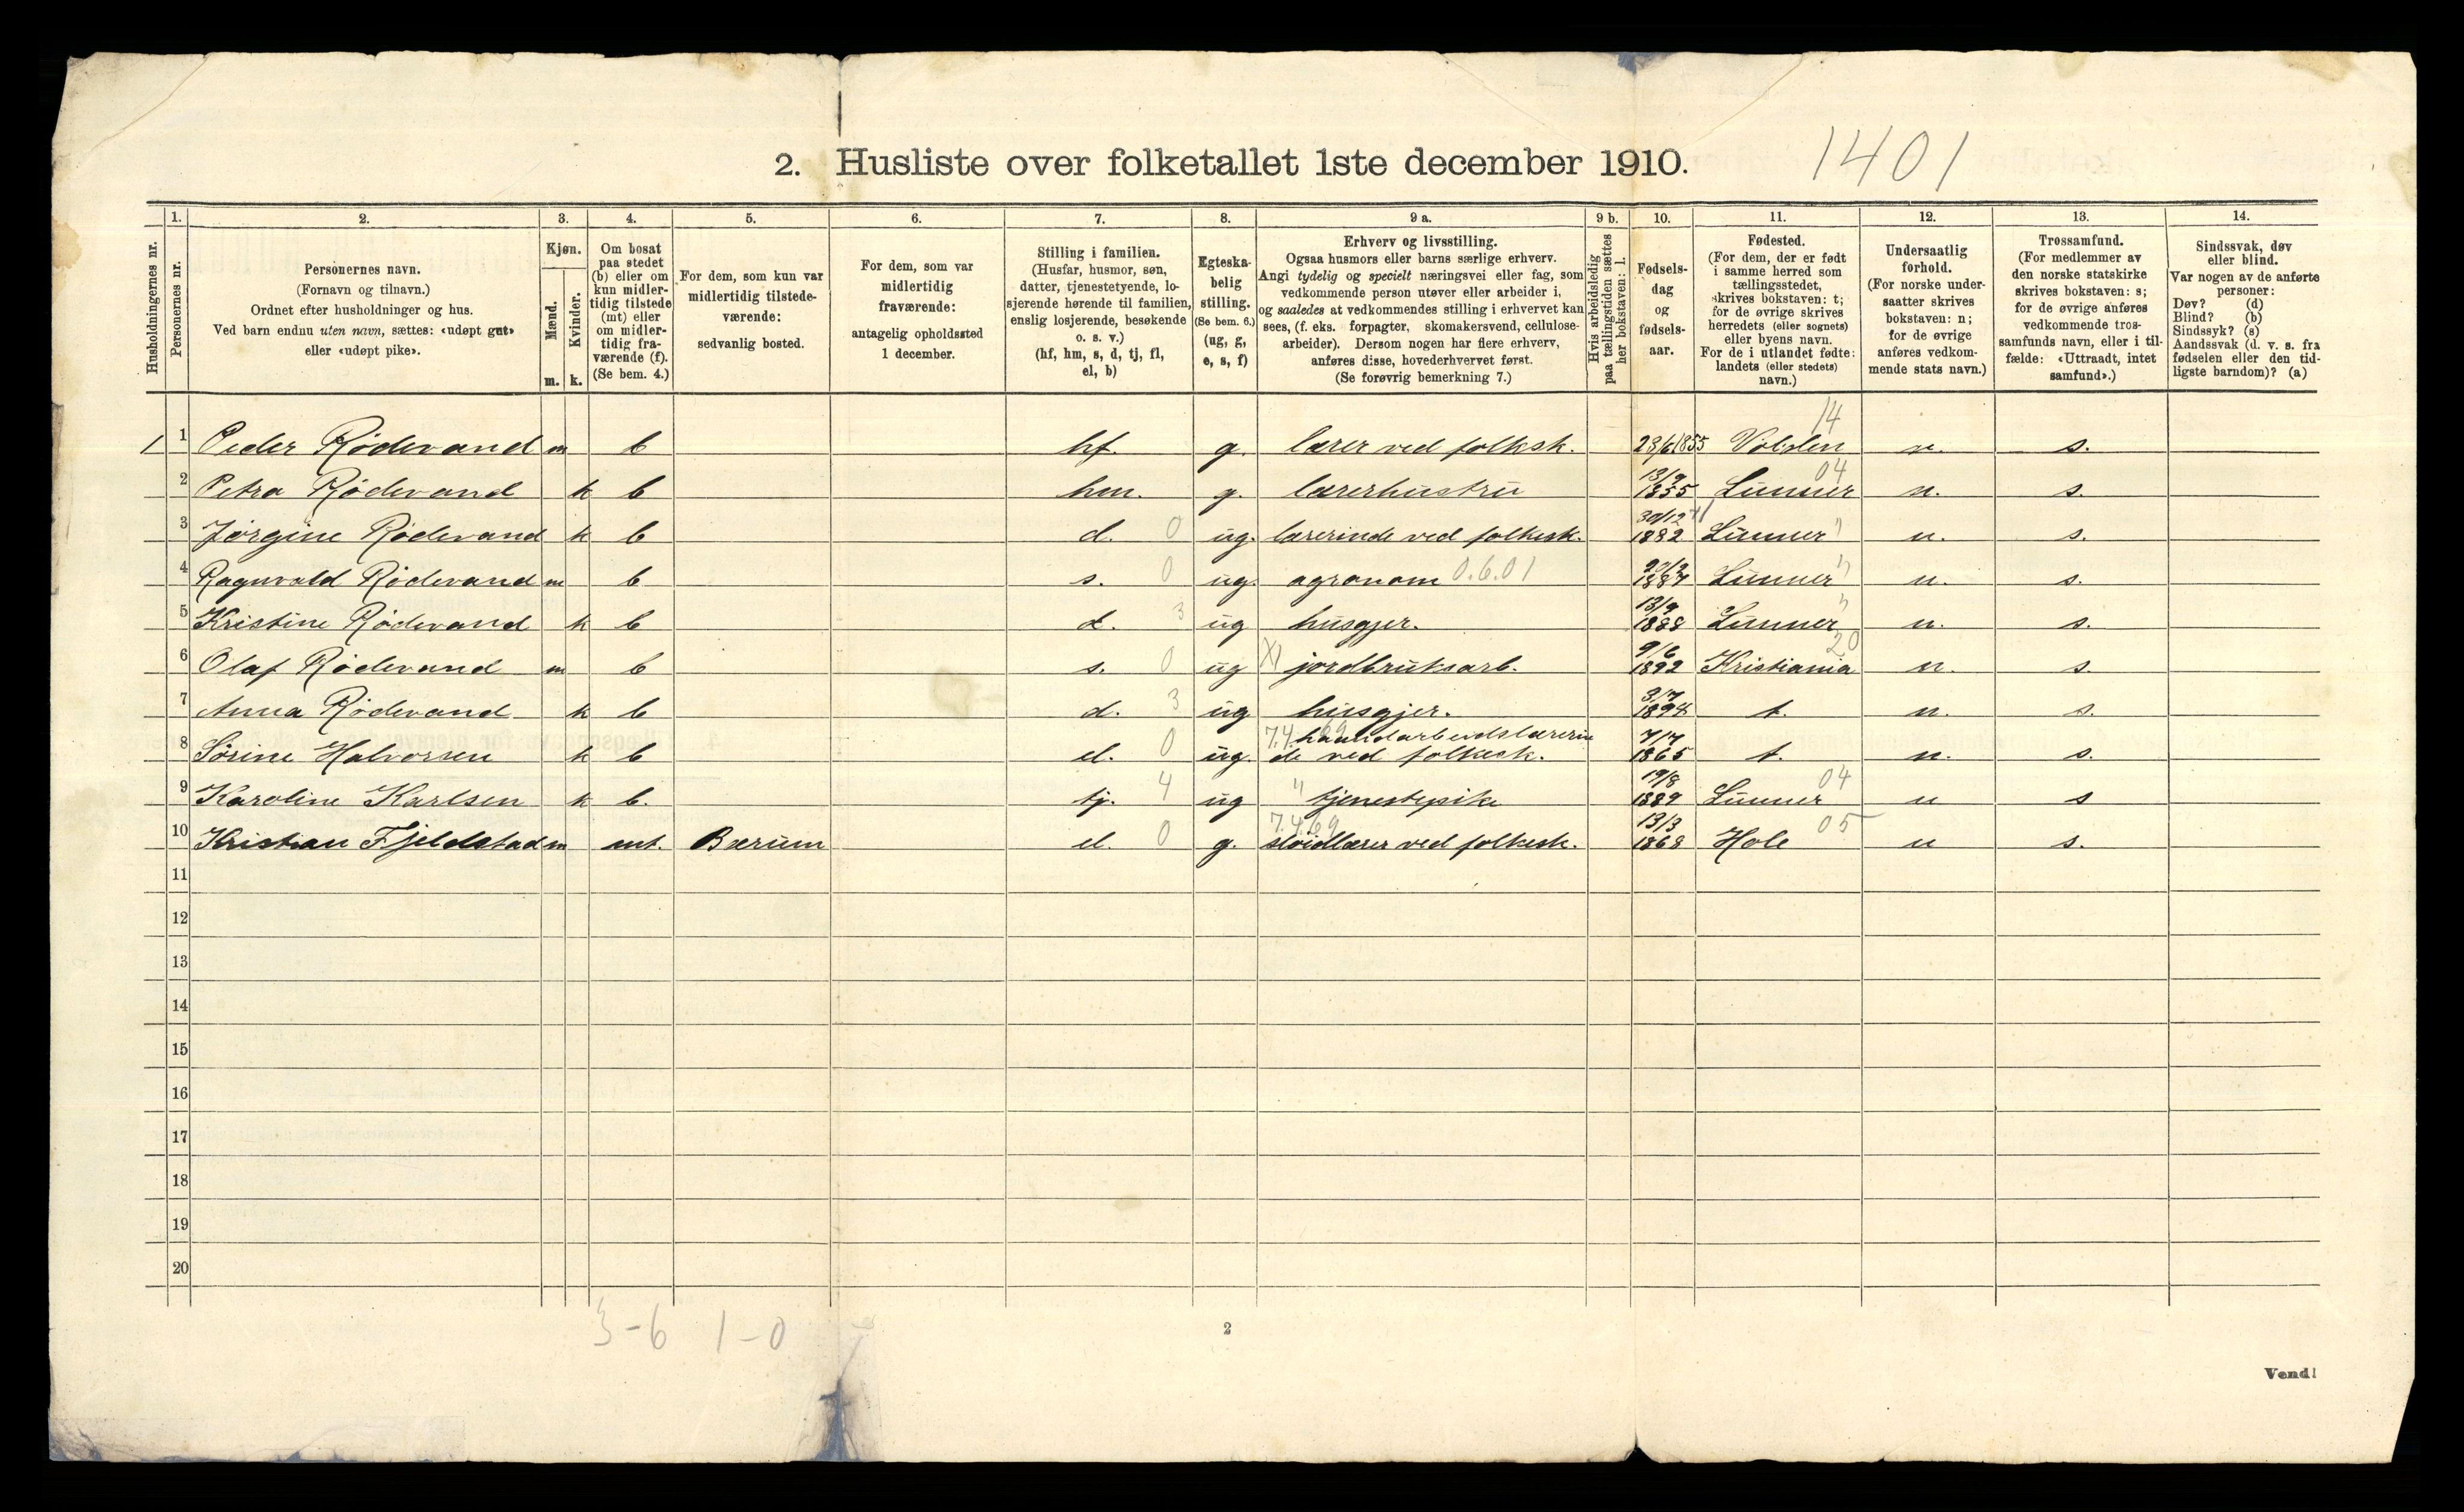 2. Husliste over folketallet 1ste december 1910.
1401
Husholdningernes nr.
1.
Personernes nr.
2.
Personernes navn.
(Fornavn og tilnavn.)
Ordnet efter husholdninger og hus.
Ved barn endnu uten navn, sættes: «udøpt gut»
eller «udøpt pike».
3.
Kjøn.
Mænd.
Kvinder.
m. k.
4.
Om bosat
paa stedet
(b) eller om
kun midler-
tidig tilstede
(mt) eller
om midler-
tidig fra-
værende (f).
(Se bem. 4.)
5.
For dem, som kun var
midlertidig tilstede-
værende:
sedvanlig bosted.
6.
For dem, som var
midlertidig
fraværende:
antagelig opholdssted
1 december.
7.
Stilling i familien.
(Husfar, husmor, søn,
datter, tjenestetyende, lo-
sjerende hørende til familien,
enslig losjerende, besøkende
o. s. v.)
(hf, hm, s, d, tj, fl,
el, b)
8.
Egteska-
belig
stilling.
(Se bem. 6.)
(ug, g,
e, s, f)
9 a.
Erhverv og livsstilling.
Ogsaa husmors eller barns særlige erhverv.
Angi tydelig og specielt næringsvei eller fag, som
vedkommende person utøver eller arbeider i,
og saaledes at vedkommendes stilling i erhvervet kan
sees, (f. eks. forpagter, skomakersvend, cellulose-
arbeider). Dersom nogen har flere erhverv,
anføres disse, hovederhvervet først.
(Se forøvrig bemerkning 7.)
9 b.
Hvis arbeidsledig
paa tællingstiden sættes
her bokstaven: l.
10.
Fødsels-
dag
og
fødsels-
aar.
11.
Fødested.
(For dem, der er født
i samme herred som
tællingsstedet,
skrives bokstaven: t;
for de øvrige skrives
herredets (eller sognets)
eller byens navn.
For de i utlandet fødte:
landets (eller stedets)
navn.)
12.
Undersaatlig
forhold.
(For norske under-
saatter skrives
bokstaven: n;
for de øvrige
anføres vedkom-
mende stats navn.)
13.
Trossamfund.
(For medlemmer av
den norske statskirke
skrives bokstaven: s;
for de øvrige anføres
vedkommende tros-
samfunds navn, eller i til-
fælde: «Uttraadt, intet
samfund».)
14.
Sindssvak, døv
eller blind.
Var nogen av de anførte
personer:
Døv? (d)
Blind? (b)
Sindssyk? (s)
Aandssvak (d. v. s. fra
fødselen eller den tid-
ligste barndom)? (a)
1 1 Peder Rödevand m b hf. g. lærer ved folksk. 23/6 1855 Volden 14 n. s.
2 Petra Rödevand k b hm. g. lærerhustru 13/9 1855 Lunner 04 n. s.
3 Jörgine Rödevand k b d. 0 ug. lærerinde ved folkesk. 30/12 1882 Lunner " n. s.
4 Ragnvald Rödevand m b s. 0 ug. agronom 0.6.01 1887 Lunner " n. s.
5 Kristine Rödevand k b d. 3 ug husgjer. 13/9 1888 Lunner " n. s.
6 Olaf Rödevand m b s. 0 ug jordbruksarb. 9/6 1892 Kristiania 20 n. s.
7 Anna Rödevand k b d. 3 ug husgjer. 3/7 1894 t. n. s.
8 Sörine Halvorsen k b el. 0 ug. haandarbeidslærerin
de ved folkesk. 7/7 1865 t. n. s.
9 Karoline Karlsen k b. tj. 4 ug " tjenestepike 19/8 1889 Lunner 04 n s
10 Kristian Fjeldstad m mt. Bærum el. 0 g. 7.4.69 slöidlærer ved folkesk. 13/3 1868 Hole 05 n s.
11
12
13
14
15
16
17
18
19
20
3-6 1-0
2
Vend!